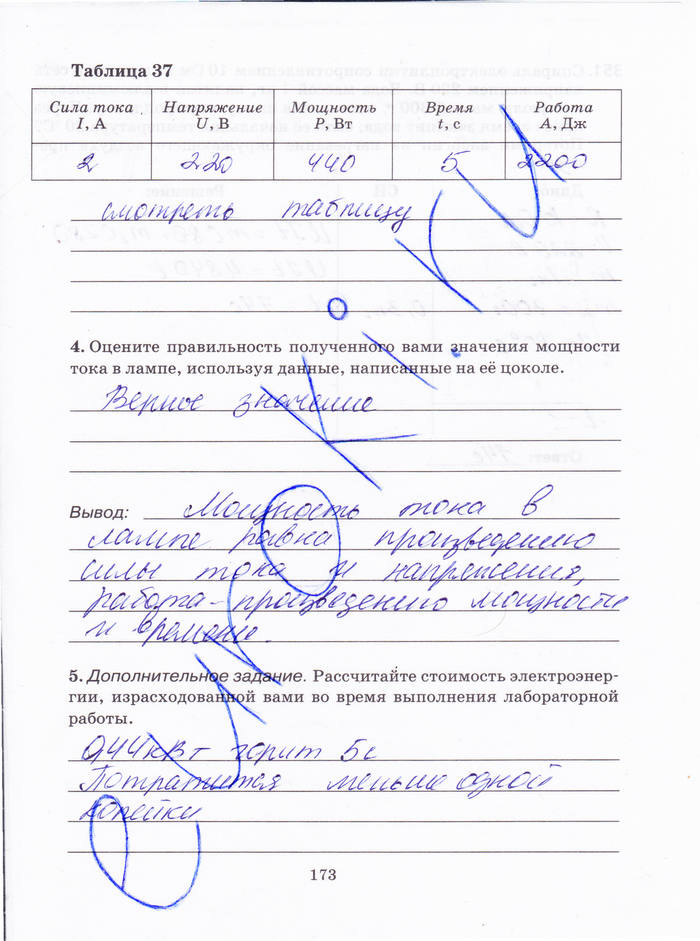 Таблица 37
Сила тока I, А | Напряжение U, В | Мощность P, Вт | Время t, с | Работа A, Дж
2 | 220 | 440 | 5 | 2200
смотреть таблицу
4. Оцените правильность полученного вами значения мощности
тока в лампе, используя данные, написанные на её цоколе.
Верное значение
Вывод: Мощность тока в
лампе равна произведению
силы тока и напряжения,
работа - произведению мощности
и времени.
5. Дополнительное задание. Рассчитайте стоимость электроэнер-
гии, израсходованной вами во время выполнения лабораторной
работы.
0,44 кВт горит 5с
Потратится меньше одной
копейки
173